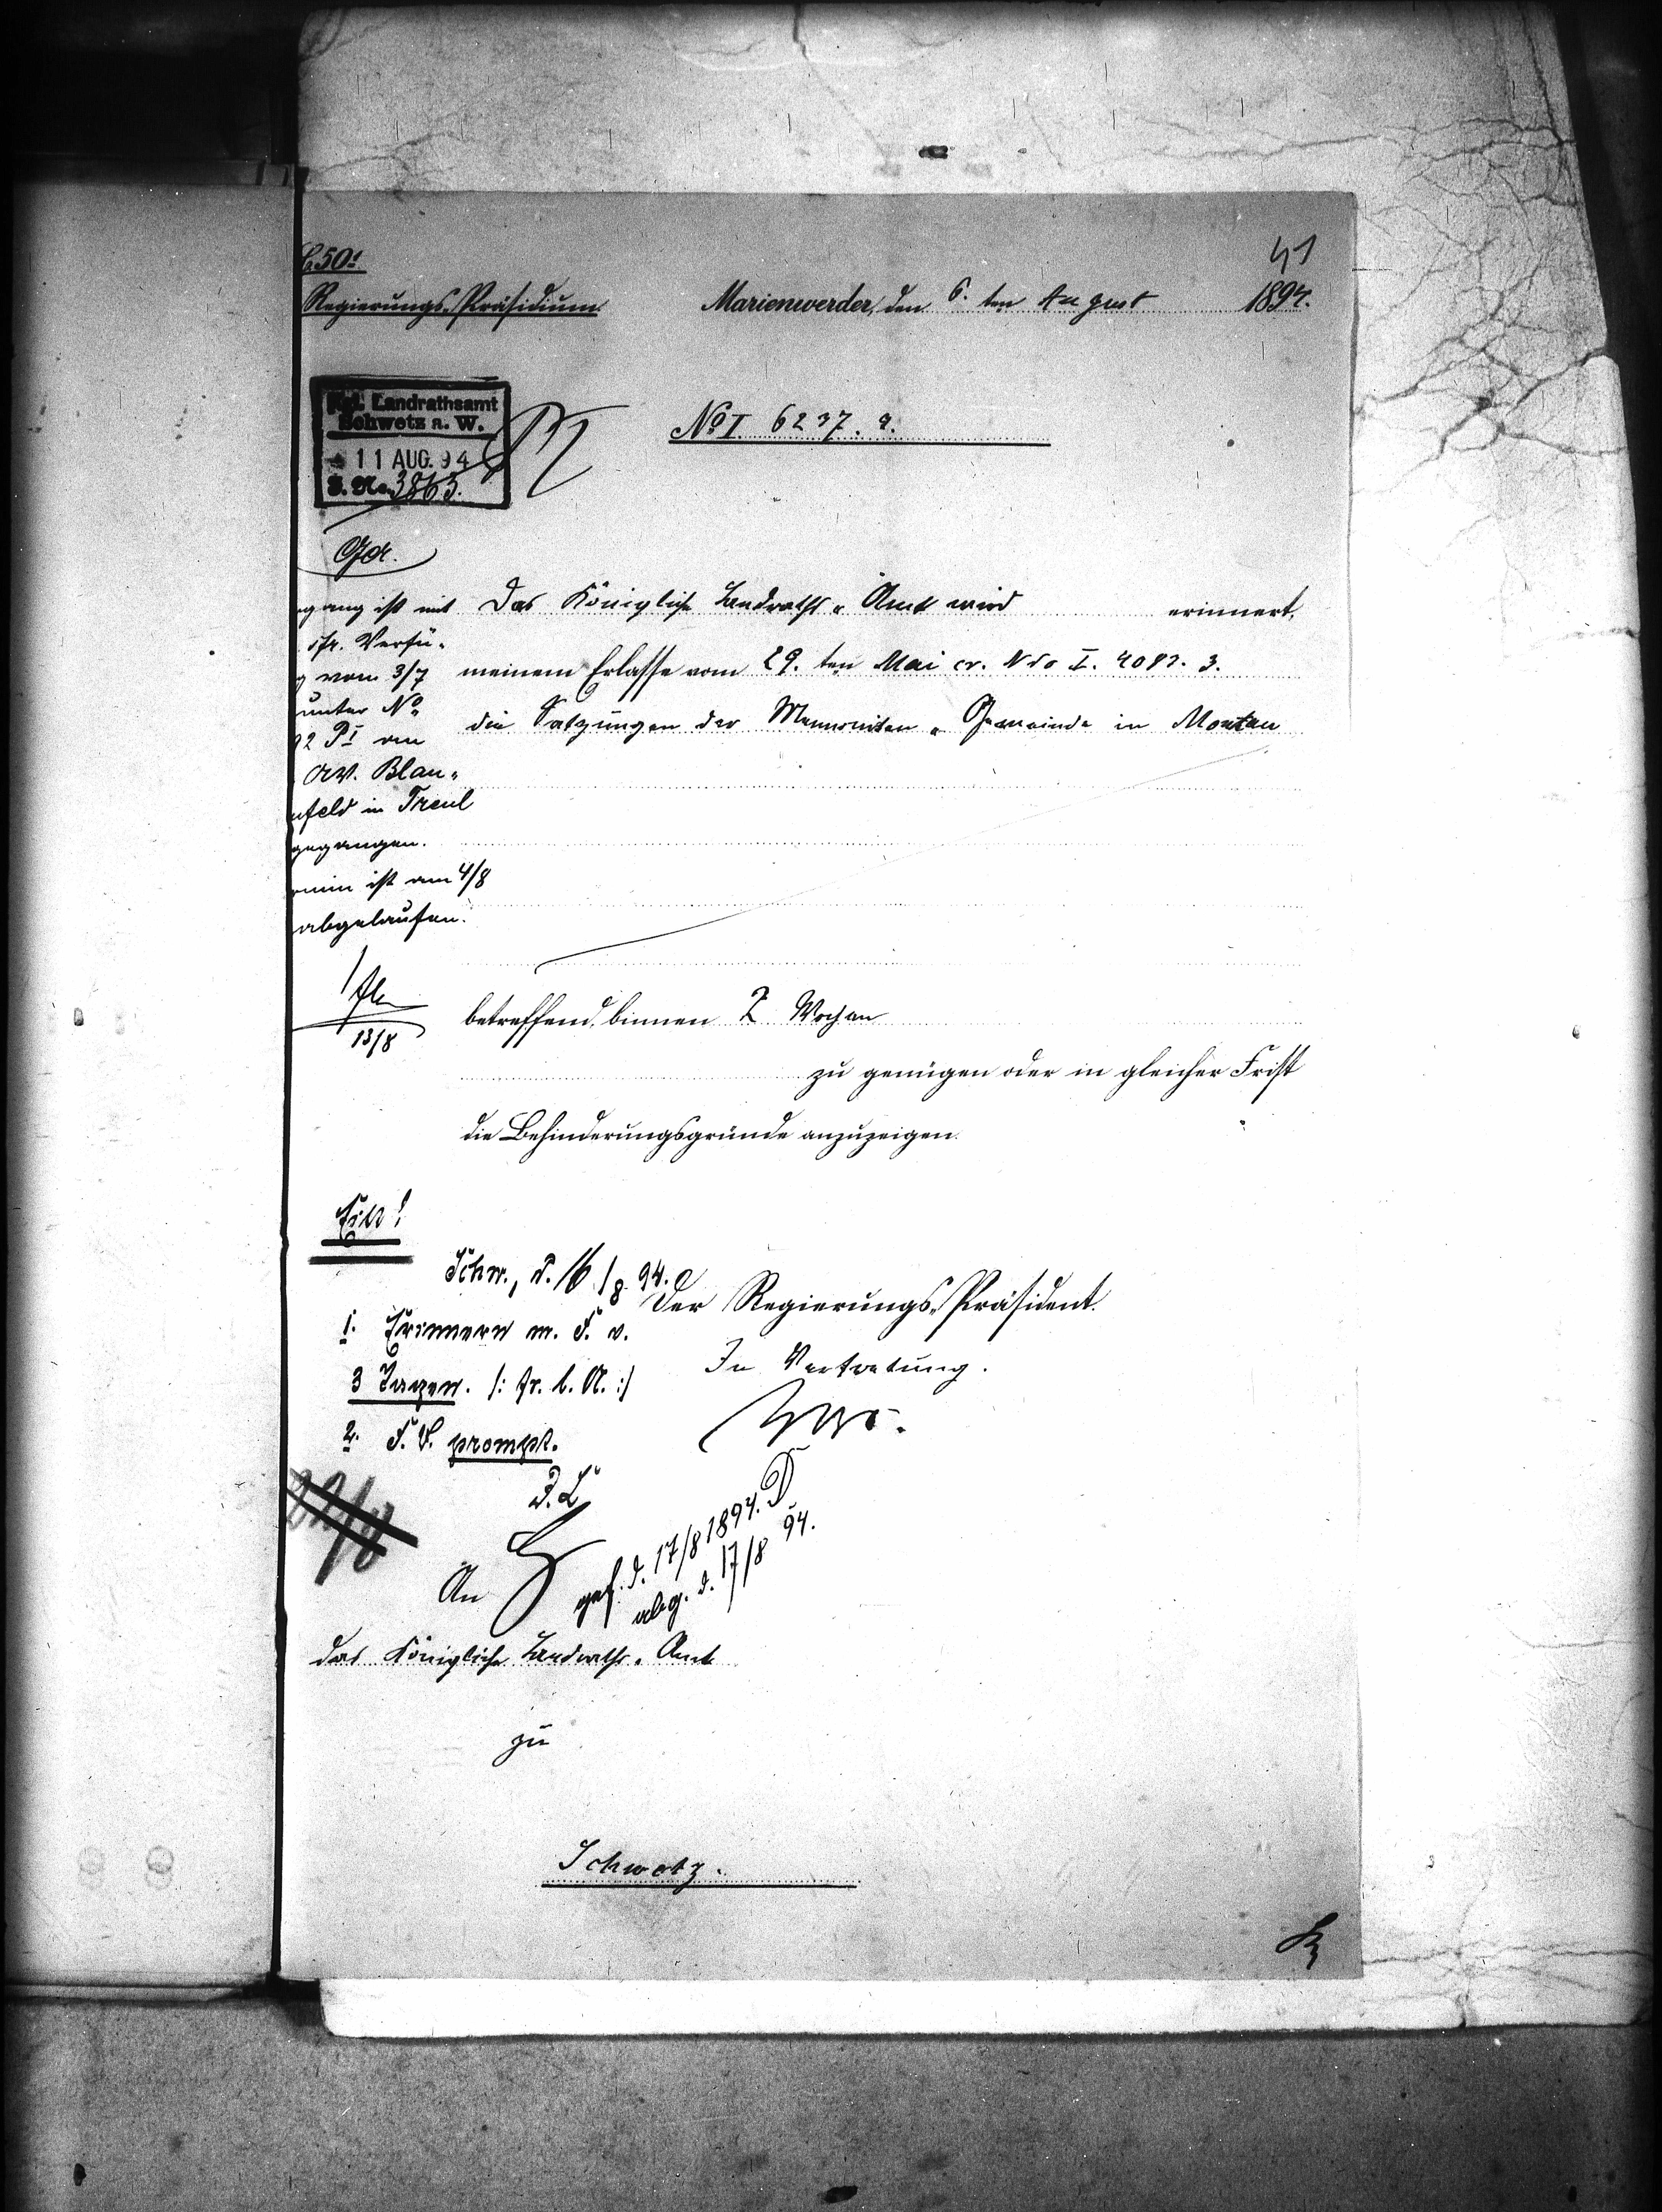 41
Regierungs-Präsidium.
Marienwerder, den 6. ten August 1894.
Kgl. Landrathsamt
Schwetz a. W.
11 AUG. 94
J. No. 3863.
No I. 6237. 3.
gang ist mit
ifr. Verfü-
g vom 3/7
unter No
92 PI an
AV. Blau-
nfeld in Treul
gegangen.
rmin ist am 4/8
abgelaufen.
13/8
Das Königliche Landraths-Amt wird erinnert,
meinem Erlasse vom 29. ten Mai cr. Nro I. 4082. 3.
die Satzungen der Mennoniten-Gemeinde in Montau
betreffend, binnen 2 Wochen
zu genügen oder in gleicher Frist
die Behinderungsgründe anzuzeigen.
Eilt!
Schw., d. 16/8. 94.
1. Erinnern m. F. v.
3 Tagen. /: fr. l. A. :/
2. F. V. prompt.
D. L.
Der Regierungs-Präsident.
In Vertretung.
gef. d. 17/8 1894. D
abg. d. 17/8 94.
An
das Königliche Landraths-Amt
zu
Schwetz.